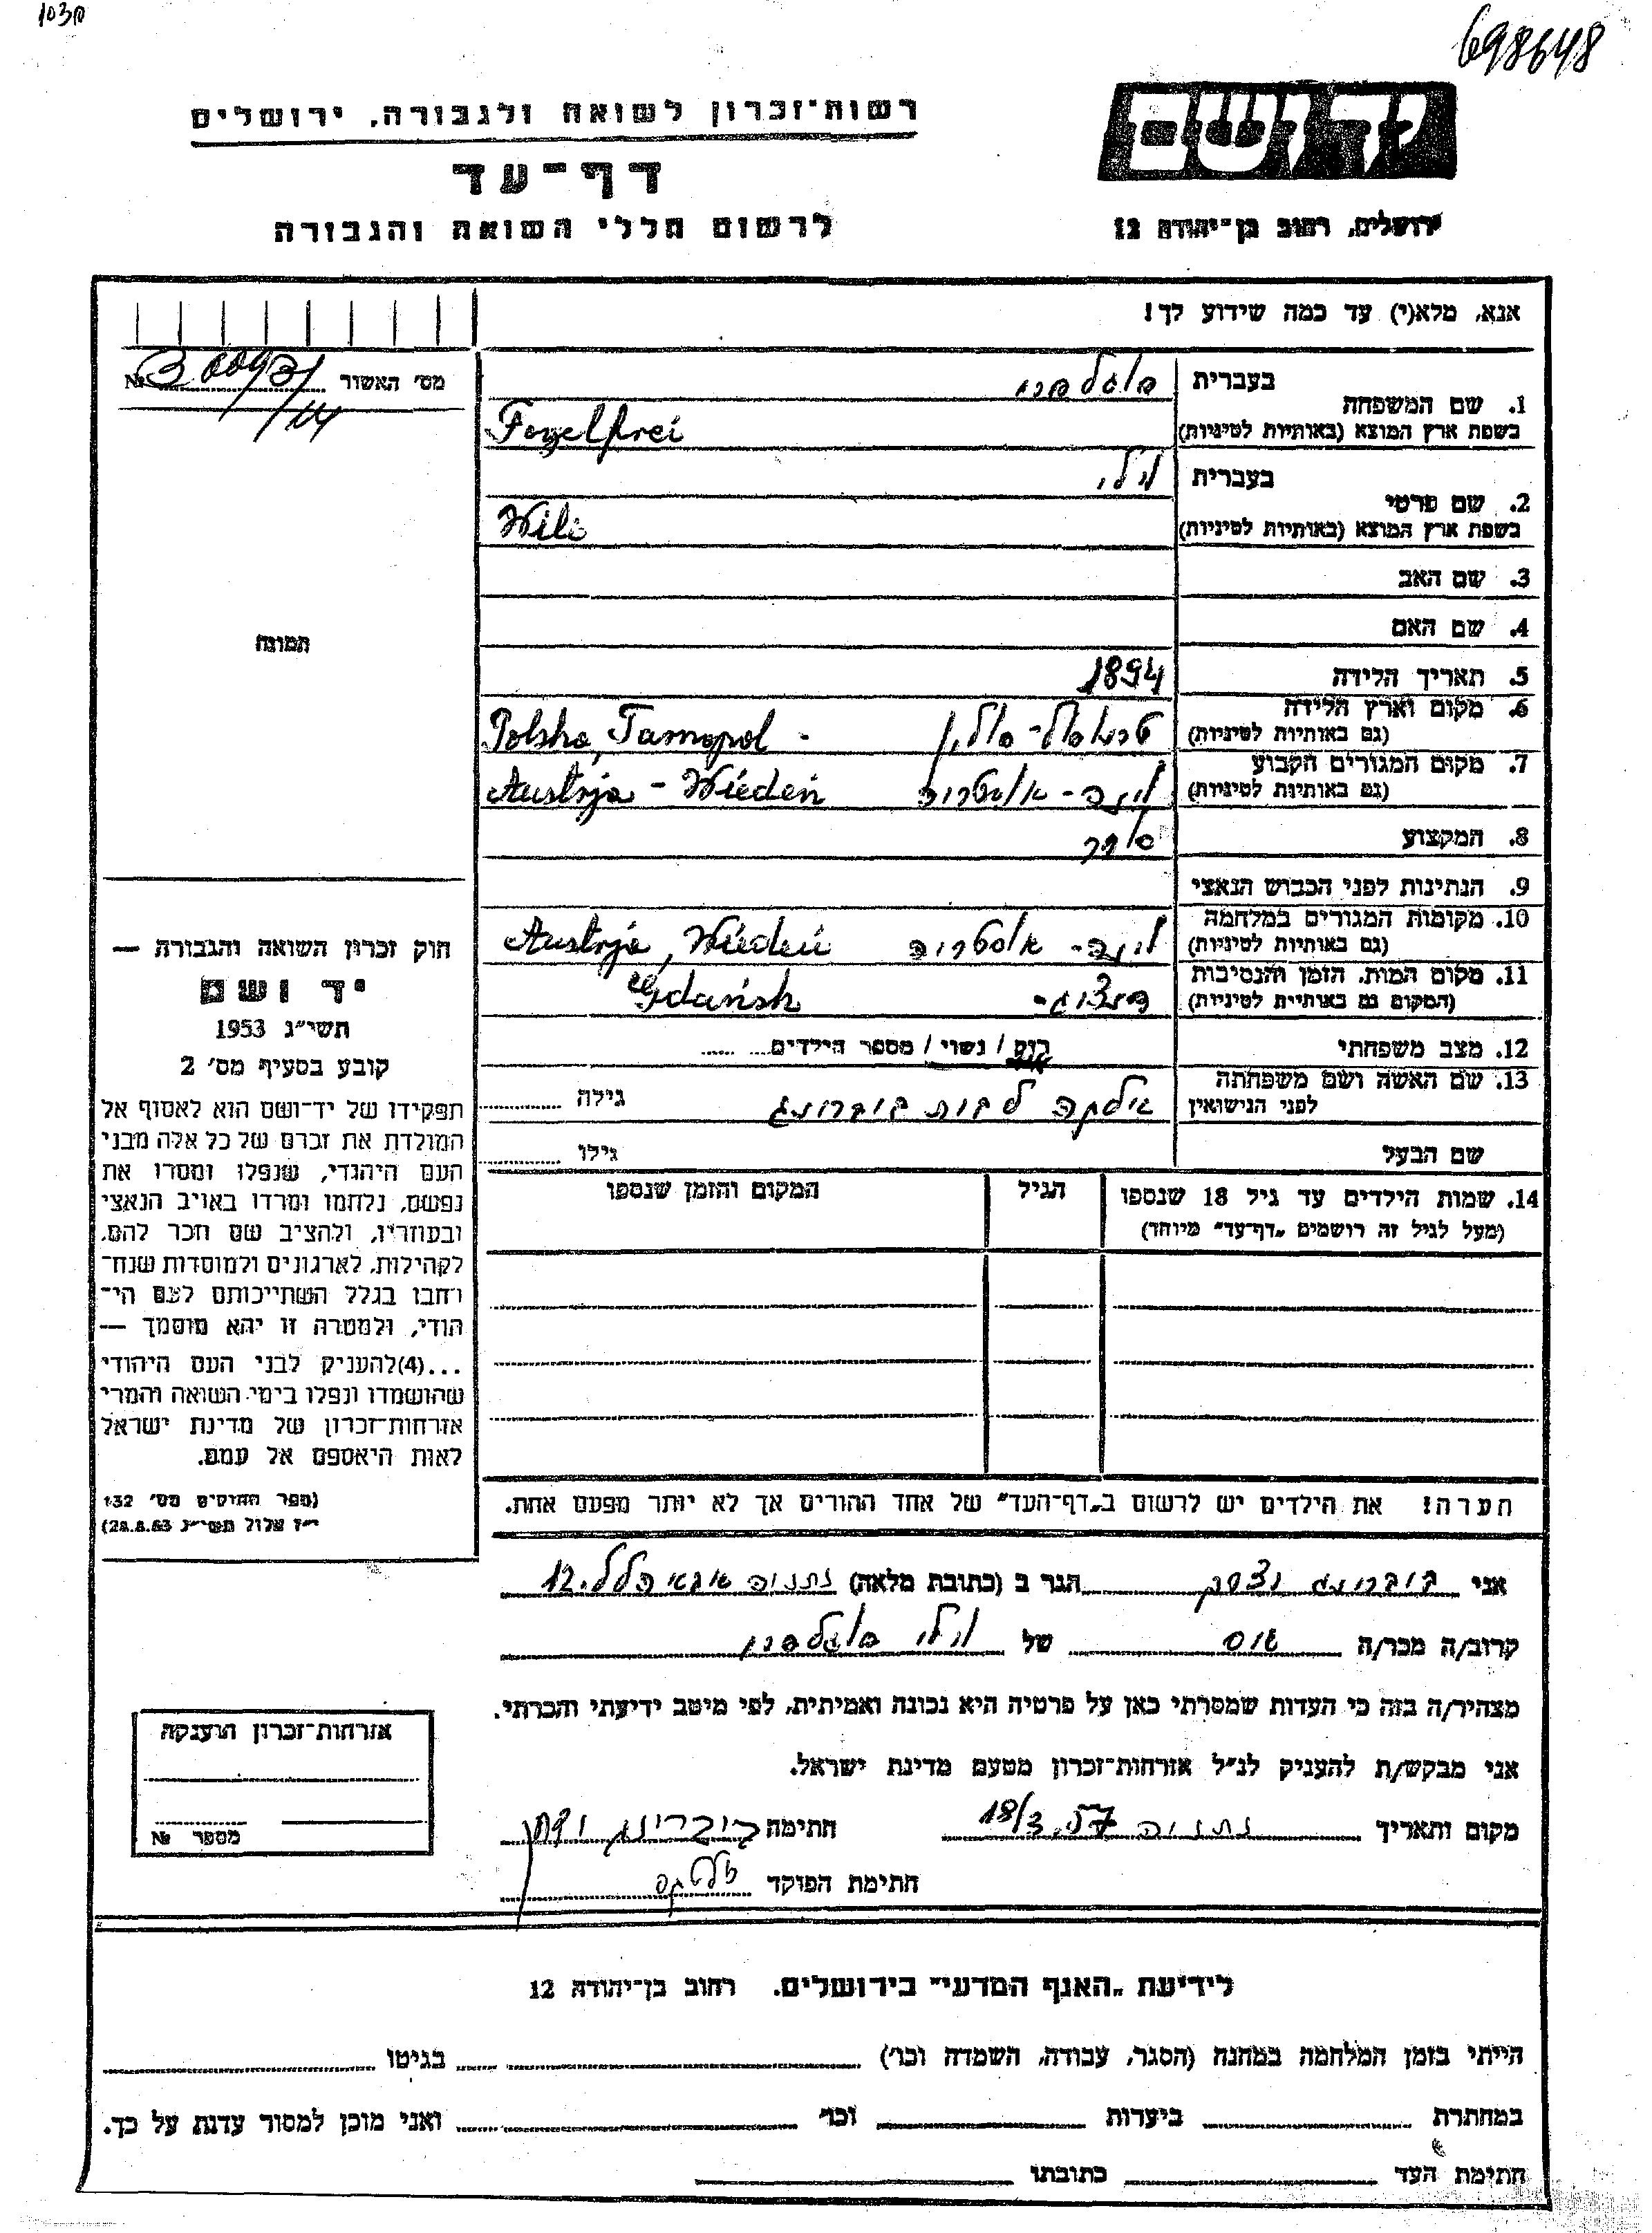 698648
יד ושם
רשות־זכרון לשואה ולגבורה, ירושלים
דף־עד
לרשום חללי השואה והגבורה
ירושלים, רחוב בן־יהודה 12
אנא, מלא(י) עד כמה שידוע לך!
מס׳ האשור №
1. שם המשפחה
בעברית פוגלפריי
בשפת ארץ המוצא (באותיות לטיניות) Fogelfrei
2. שם פרטי
בעברית וילי
בשפת ארץ המוצא (באותיות לטיניות) Wili
3. שם האב
4. שם האם
5. תאריך הלידה 1894
6. מקום וארץ הלידה
(גם באותיות לטיניות) טרנופול - פולין - Polska, Tarnopol
7. מקום המגורים הקבוע
(גם באותיות לטיניות) וינה - אוסטריה Austrja - Wiedeń
8. המקצוע סוחר
9. הנתינות לפני הכבוש הנאצי
10. מקומות המגורים במלחמה
(גם באותיות לטיניות) וינה - אוסטריה Austrja, Wiedeń
11. מקום המות, הזמן והנסיבות
(המקום גם באותיות לטיניות) דנציג - Gdańsk
12. מצב משפחתי רווק / נשוי / מספר הילדים
13. שם האשה ושם משפחתה
לפני הנישואין לבית גילה
שם הבעל גילו
14. שמות הילדים עד גיל 18 שנספו הגיל המקום והזמן שנספו
(מעל לגיל זה רושמים „דף־עד״ מיוחד)
הערה! את הילדים יש לרשום ב„דף־העד״ של אחד ההורים אך לא יותר מפעם אחת.
תמונה
חוק זכרון השואה והגבורה —
יד ושם
תשי״ג 1953
קובע בסעיף מס׳ 2
תפקידו של יד־ושם הוא לאסוף אל
המולדת את זכרם של כל אלה מבני
העם היהודי, שנפלו ומסרו את
נפשם, נלחמו ומרדו באויב הנאצי
ובעוזריו, ולהציב שם וזכר להם,
לקהילות, לארגונים ולמוסדות שנח־
רבו בגלל השתייכותם לעם הי־
הודי, ולמטרה זו יהא מוסמך —
...(4)להעניק לבני העם היהודי
שהושמדו ונפלו בימי השואה והמרי
אזרחות־זכרון של מדינת ישראל
לאות היאספם אל עמם.
(ספר החוקים מס׳ 132
י״ז אלול תשי״ג 28.8.53)
אני הגר ב (כתובת מלאה) נתניה 12
קרוב/ה מכר/ה גיס של וילי פוגלפריי
מצהיר/ה בזה כי העדות שמסרתי כאן על פרטיה היא נכונה ואמיתית, לפי מיטב ידיעתי והכרתי.
אני מבקש/ת להעניק לנ״ל אזרחות־זכרון מטעם מדינת ישראל.
מקום ותאריך נתניה 18/3 57 חתימה
חתימת הפוקד
אזרחות־זכרון הוענקה
מספר №
לידיעת „האגף המדעי״ בירושלים. רחוב בן־יהודה 12
הייתי בזמן המלחמה במחנה (הסגר, עבודה, השמדה וכו׳) בגיטו
במחתרת ביערות וכו׳ ואני מוכן למסור עדות על כך.
חתימת העד כתובתו